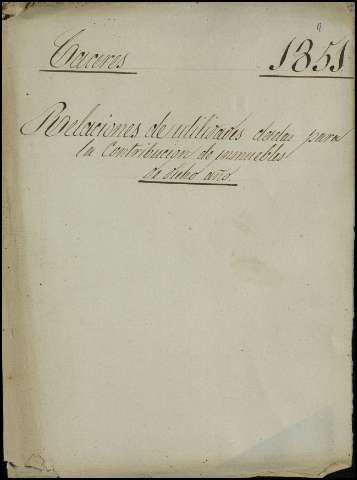 Caceres
1851
Relaciones de utilidades dadas para
la Contribucion de inmuebles
de dicho año.